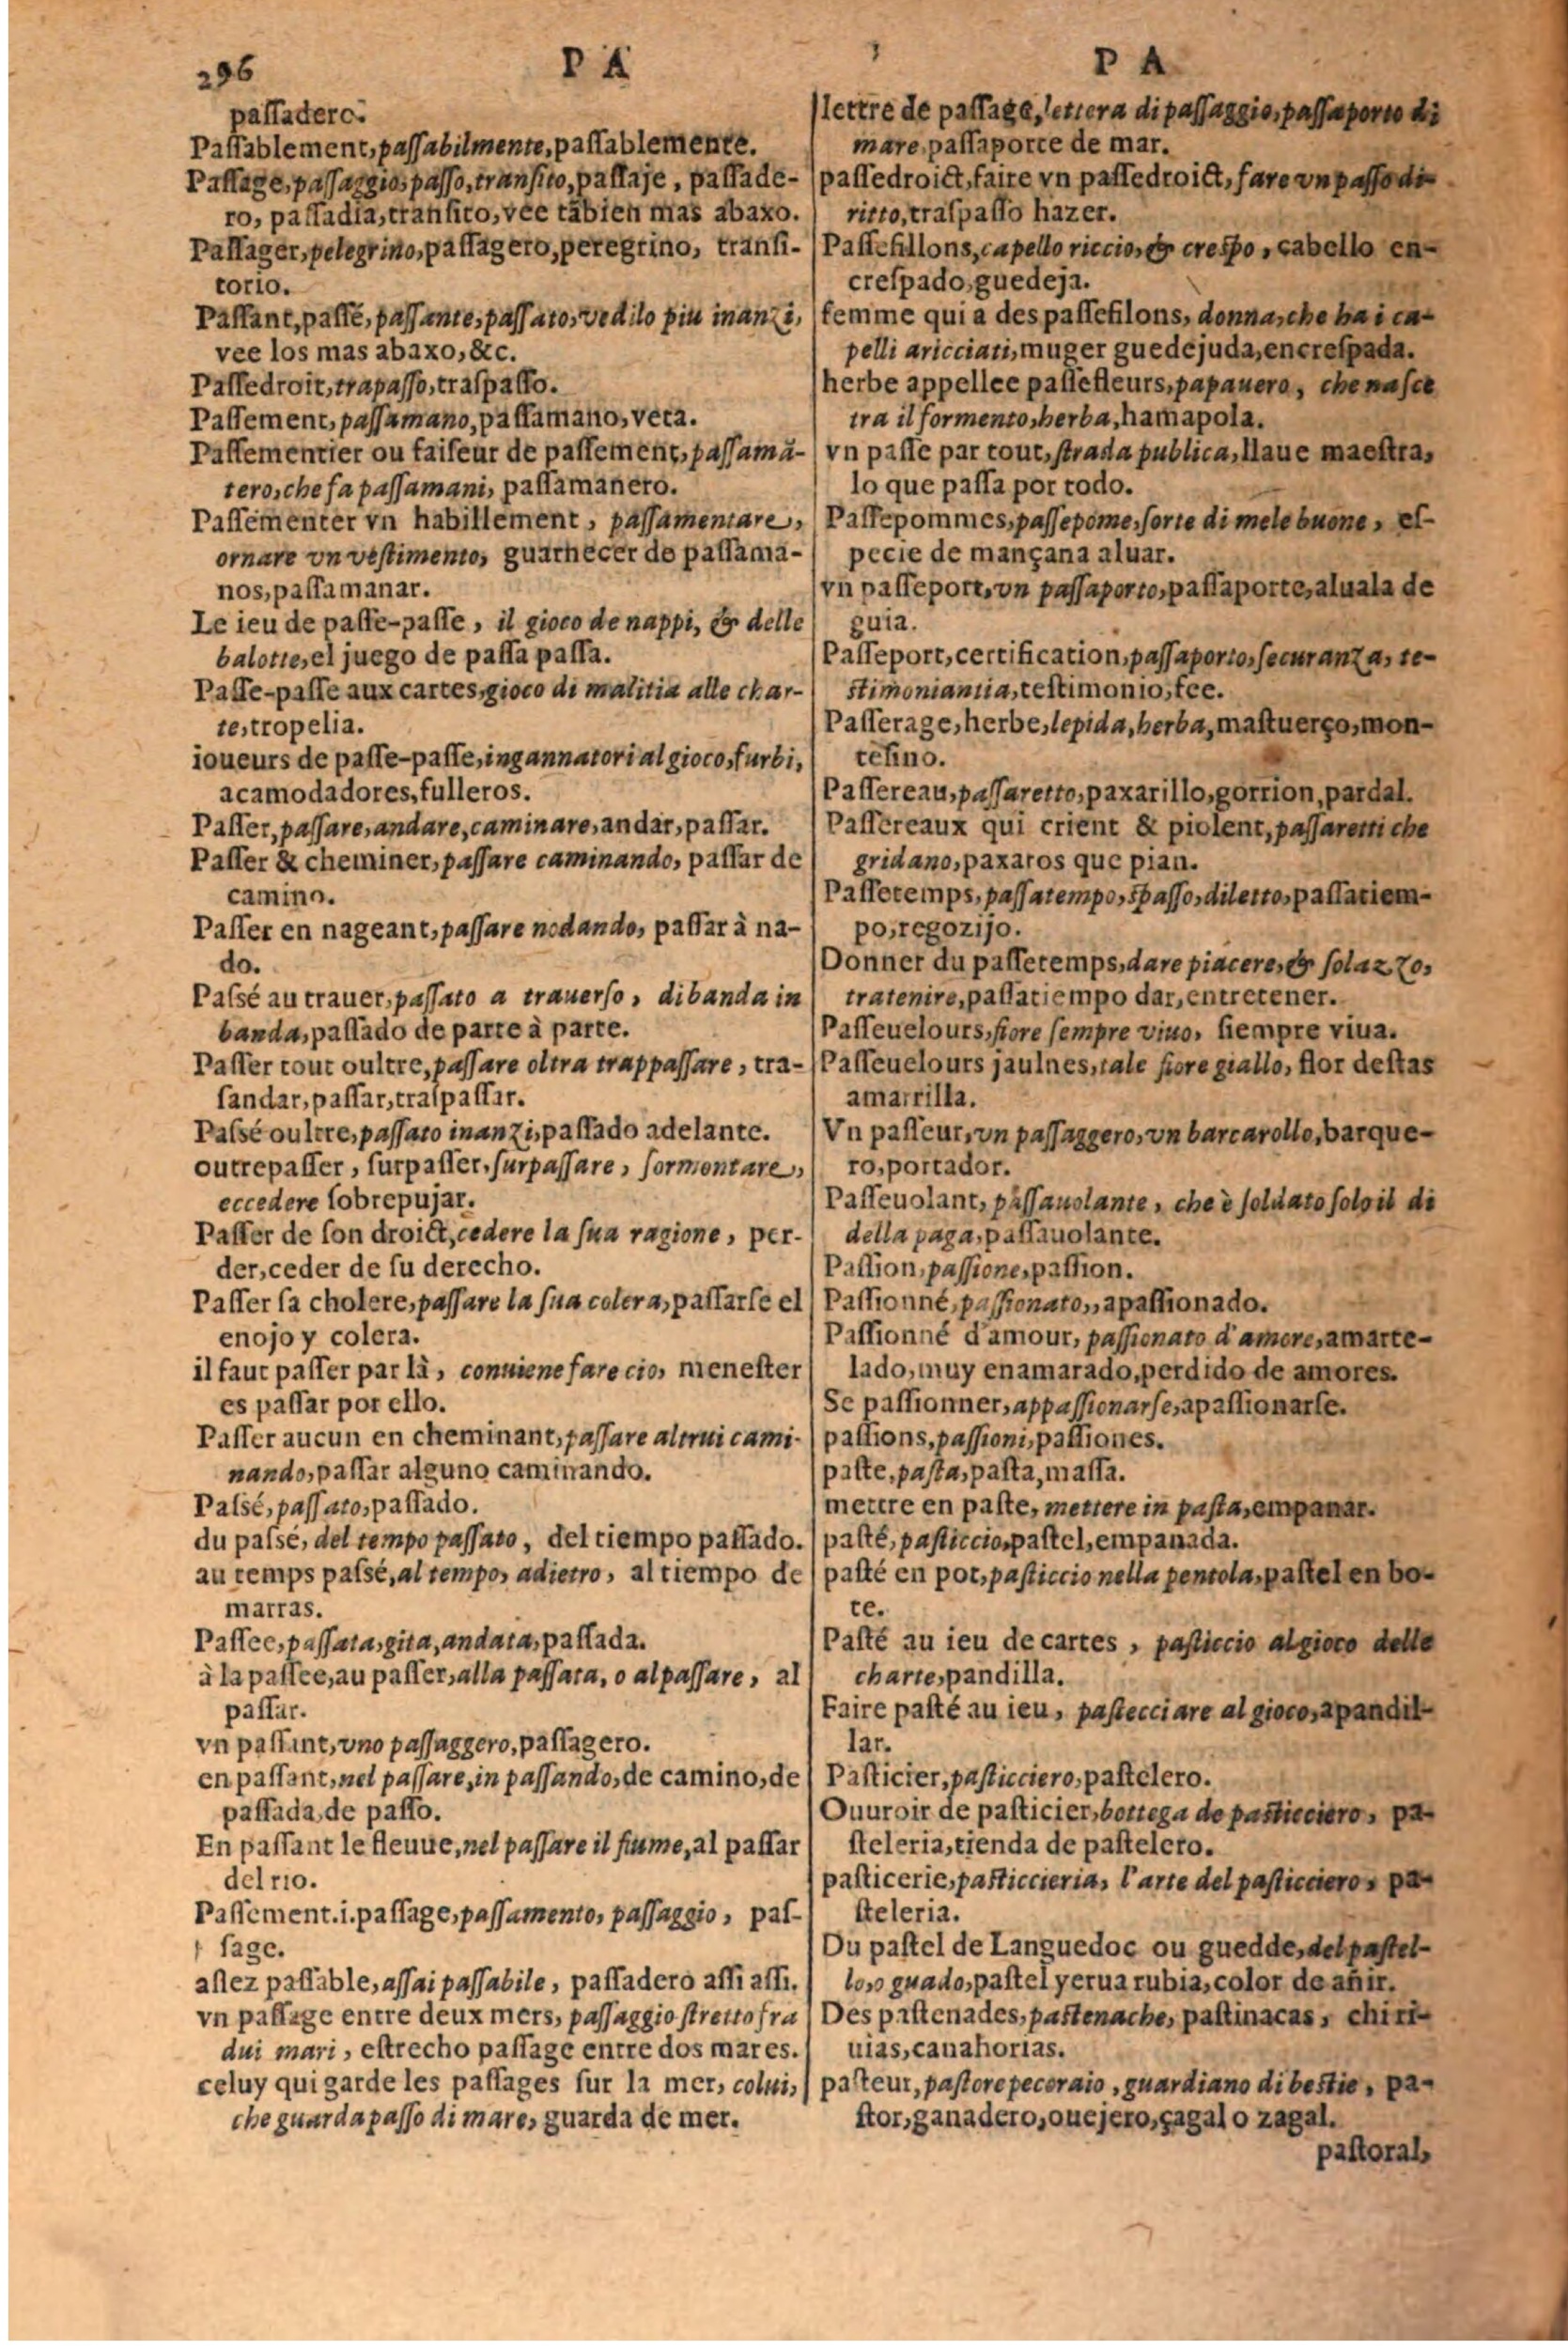 296
P A
P A
paſſadero.
Paſſablement, paſſabilmente, paſſablemente.
Paſſage, paſſaggio, paſſo, tranſito, paſſaje, paſſade-
ro, paſſadia, tranſito, vee tābien mas abaxo.
Paſſager, pelegrino, paſſagero, peregrino, tranſi-
torio.
Paſſant, paſſé, paſſante, paſſato, vedilo piu inanzi,
vee los mas abaxo, &c.
Paſſedroit, trapaſſo, traſpaſſo.
Paſſement, paſſamano, paſſamano, veta.
Paſſementier ou faiſeur de paſſement, paſſamā-
tero, che fa paſſamani, paſſamanero.
Paſſementer vn habillement, paſſamentare,
ornare vn veſtimento, guarnecer de paſſama-
nos, paſſamanar.
Le ieu de paſſe-paſſe, il gioco de nappi, & delle
balotte, el juego de paſſa paſſa.
Paſſe-paſſe aux cartes, gioco di malitia alle char-
te, tropelia.
ioueurs de paſſe-paſſe, ingannatori al gioco, furbi,
acamodadores, fulleros.
Paſſer, paſſare, andare, caminare, andar, paſſar.
Paſſer & cheminer, paſſare caminando, paſſar de
camino.
Paſſer en nageant, paſſare nodando, paſſar à na-
do.
Paſsé au trauer, paſſato a trauerſo, di banda in
banda, paſſado de parte à parte.
Paſſer tout oultre, paſſare oltra trappaſſare, tra-
ſandar, paſſar, traſpaſſar.
Paſsé oultre, paſſato inanzi, paſſado adelante.
outrepaſſer, ſurpaſſer, ſurpaſſare, ſormontare,
eccedere ſobrepujar.
Paſſer de ſon droict, cedere la ſua ragione, per-
der, ceder de ſu derecho.
Paſſer ſa cholere, paſſare la ſua colera, paſſarſe el
enojo y colera.
il faut paſſer par là, conuiene fare cio, meneſter
es paſſar por ello.
Paſſer aucun en cheminant, paſſare altrui cami-
nando, paſſar alguno caminando.
Paſsé, paſſato, paſſado.
du paſsé, del tempo paſſato, del tiempo paſſado.
au temps paſsé, al tempo, adietro, al tiempo de
marras.
Paſſee, paſſata, gita, andata, paſſada.
à la paſſee, au paſſer, alla paſſata, o al paſſare, al
paſſar.
vn paſſant, vno paſſaggero, paſſagero.
en paſſant, nel paſſare, in paſſando, de camino, de
paſſada, de paſſo.
En paſſant le fleuue, nel paſſare il fiume, al paſſar
del rio.
Paſſement.i.paſſage, paſſamento, paſſaggio, paſ-
ſage.
aſſez paſſable, aſſai paſſabile, paſſadero aſſi aſſi.
vn paſſage entre deux mers, paſſaggio ſtretto fra
dui mari, eſtrecho paſſage entre dos mares.
celuy qui garde les paſſages ſur la mer, colui,
che guarda paſſo di mare, guarda de mer.
lettre de paſſage, lettera di paſſaggio, paſſaporto di
mare, paſſaporte de mar.
paſſedroict, faire vn paſſedroict, fare vn paſſo di-
ritto, traſpaſſo hazer.
Paſſefillons, capello riccio, & creſpo, cabello en-
creſpado, guedeja.
femme qui a des paſſefilons, donna, che ha i ca-
pelli aricciati, muger guedejuda, encreſpada.
herbe appellee paſſefleurs, papauero, che naſce
tra il formento, herba, hamapola.
vn paſſe par tout, ſtrada publica, llaue maeſtra,
lo que paſſa por todo.
Paſſepommes, paſſepome, ſorte di mele buone, eſ-
pecie de mançana aluar.
vn paſſeport, vn paſſaporto, paſſaporte, aluala de
guia.
Paſſeport, certification, paſſaporto, ſecuranza, te-
ſtimoniantia, teſtimonio, fee.
Paſſerage, herbe, lepida, herba, maſtuerço, mon-
teſino.
Paſſereau, paſſaretto, paxarillo, gorrion, pardal.
Paſſereaux qui crient & piolent, paſſaretti che
gridano, paxaros que pian.
Paſſetemps, paſſatempo, ſpaſſo, diletto, paſſatiem-
po, regozijo.
Donner du paſſetemps, dare piacere, & ſolazzo,
tratenire, paſſatiempo dar, entretener.
Paſſeuelours, fiore ſempre viuo, ſiempre viua.
Paſſeuelours jaulnes, tale fiore giallo, flor deſtas
amarrilla.
Vn paſſeur, vn paſſaggero, vn barcarollo, barque-
ro, portador.
Paſſeuolant, paſſauolante, che è ſoldato ſolo il di
della paga, paſſauolante.
Paſſion, paſſione, paſſion.
Paſſionné, paſſionato,, apaſſionado.
Paſſionné d'amour, paſſionato d'amore, amarte-
lado, muy enamarado, perdido de amores.
Se paſſionner, appaſſionarſe, apaſſionarſe.
paſſions, paſſioni, paſſiones.
paſte, paſta, paſta, maſſa.
mettre en paſte, mettere in paſta, empanar.
paſté, paſticcio, paſtel, empanada.
paſté en pot, paſticcio nella pentola, paſtel en bo-
te.
Paſté au ieu de cartes, paſticcio al gioco delle
charte, pandilla.
Faire paſté au ieu, paſtecciare al gioco, apandil-
lar.
Paſticier, paſticciero, paſtelero.
Ouuroir de paſticier, bottega de paſticciero, pa-
ſteleria, tienda de paſtelero.
paſticerie, paſticcieria, l'arte del paſticciero, pa-
ſteleria.
Du paſtel de Languedoc ou guedde, del paſtel-
lo, o guado, paſtel yerua rubia, color de añir.
Des paſtenades, paſtenache, paſtinacas, chiri-
uias, canahorias.
paſteur, paſtore pecoraio, guardiano di beſtie, pa-
ſtor, ganadero, ouejero, çagal o zagal.
paſtoral,